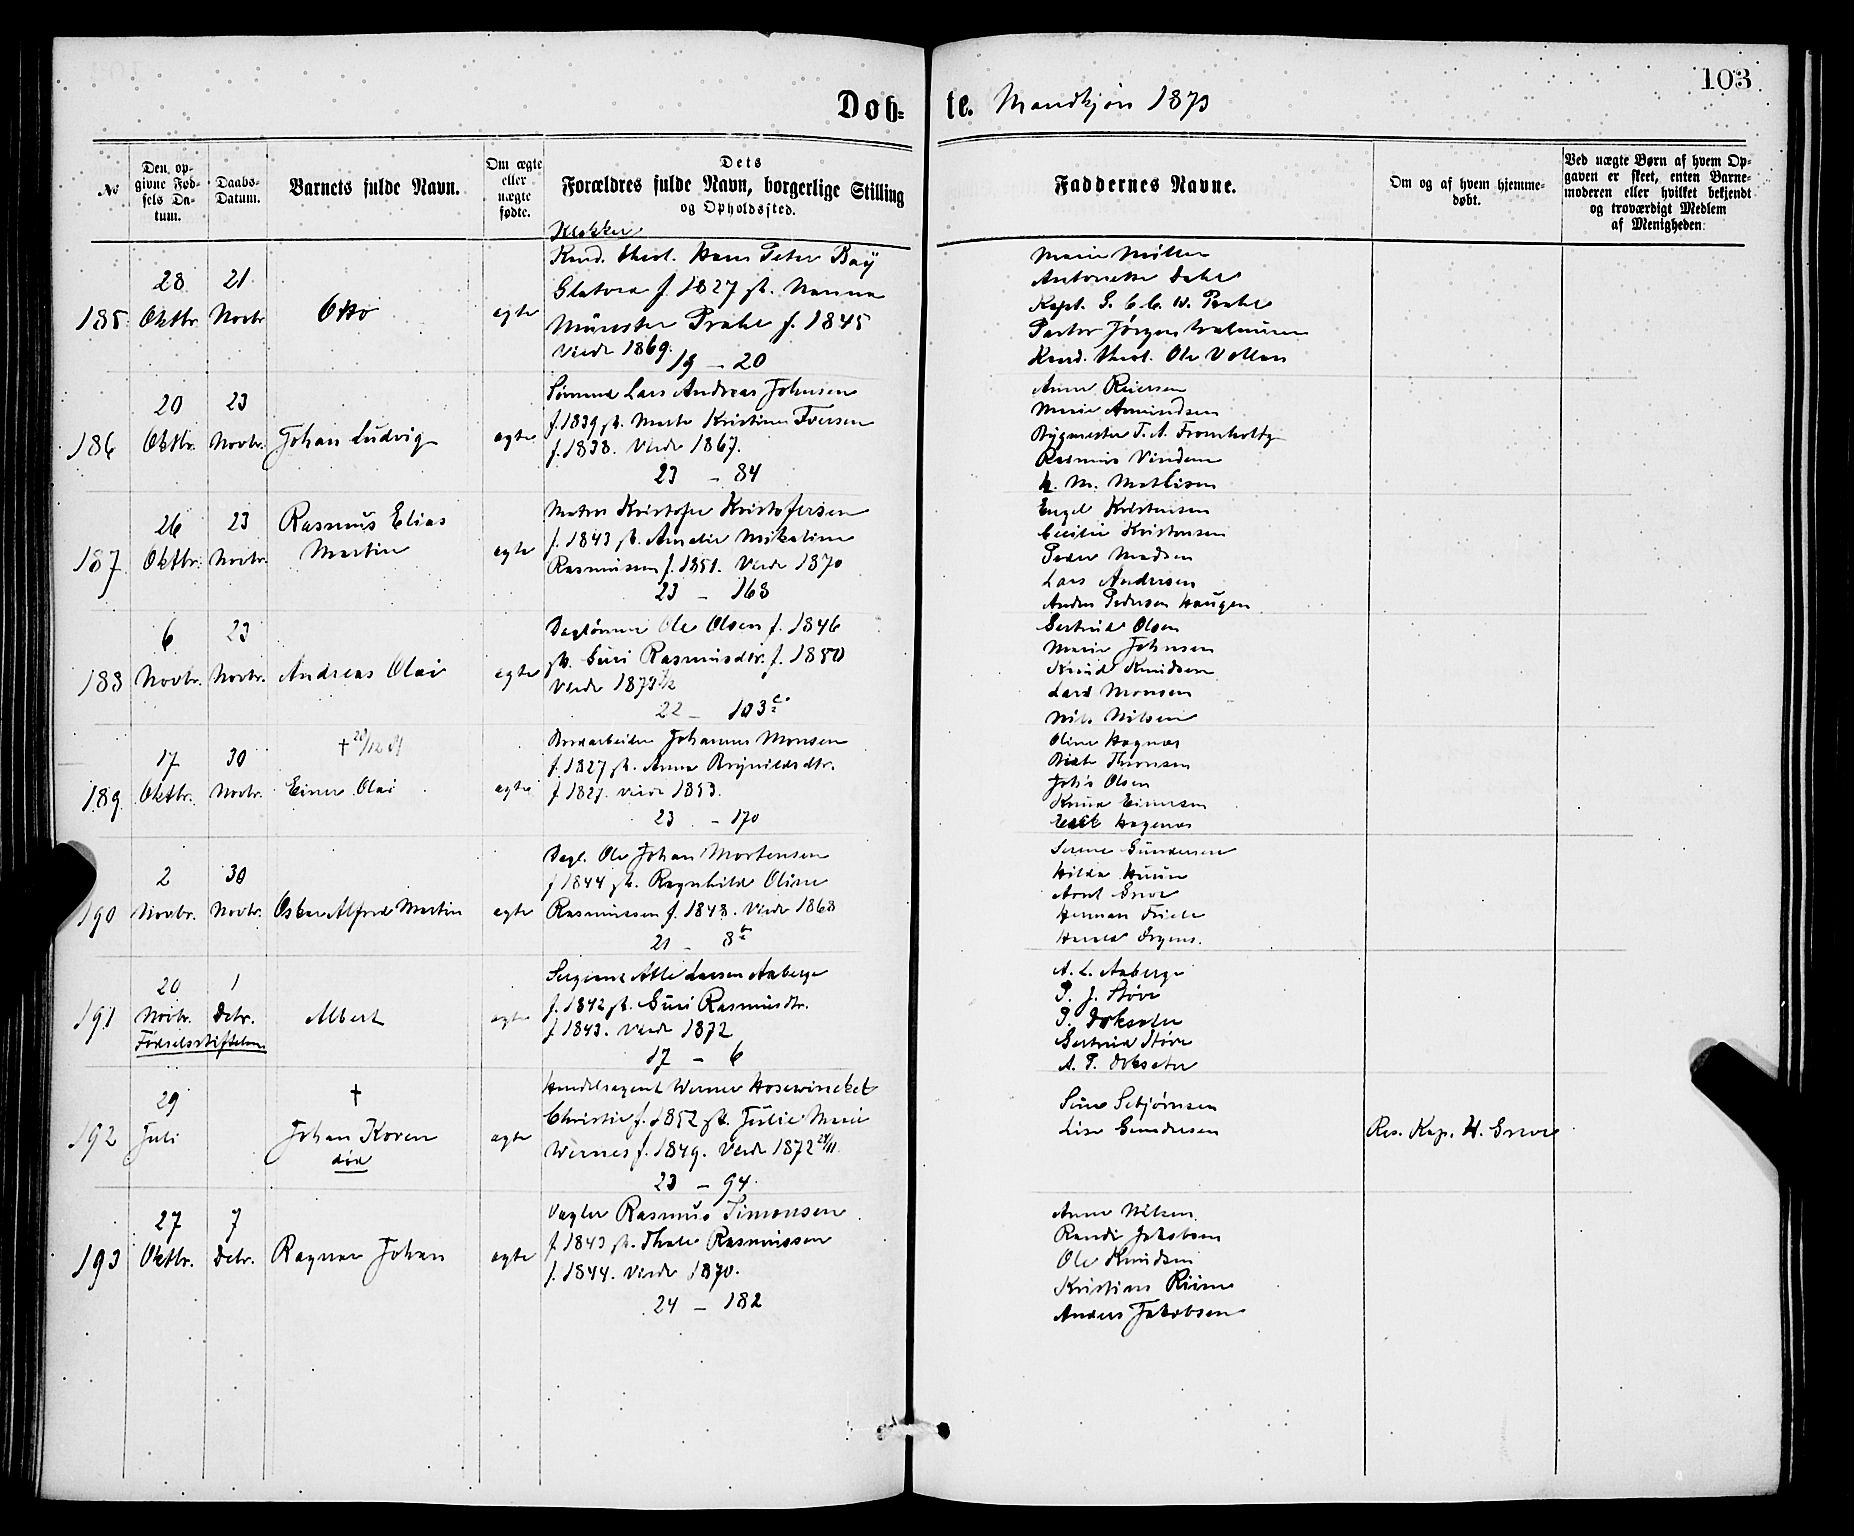 103
Døb-te. Mandkjøn 1873
No
Den opgivne Fødsels Datum.
Daabs-Datum.
Barnets fulde Navn.
Om ægte eller uægte fødte.
Dets
Forældres fulde Navn, borgerlige Stilling
og Opholdssted.
Faddernes Navne.
Om og af hvem hjemmedøbt.
Ved uægte Børn af hvem Opgaven er skeet, enten Barnemoderen eller hvilket bekjendt og troværdigt Medlem af Menigheden.
185 28 Oktbr. 21 Novbr. Otto ægte
Klokker
Kand. theol. Hans Peter Bay
f. 1827 Nanna
Münster Prahl f. 1845
Viede 1869.
19 – 20
Marie Møller
Antonette Dahl
Kapt.
Pastor Jørgen
Kand. theol. Ole Vollan
186 20 Oktbr. 23 Novbr. Johan Ludvig ægte
Lars Andreas Johnsen
f. 1839 Marte Kristine Iversen
f. 1838. Viede 1867.
23 – 84
Anne Reiersen
Marie Amundsen
Bygmester
Rasmus
M. Mathisen
187 26 Oktbr. 23 Novbr. Rasmus Elias
Martin ægte
Matros Kristofer Kristofersen
f. 1843 Amalie Mikaline
Rasmussen f. 1851. Viede 1870
23 – 168
Engel Kristensen
Cecilie Kristensen
Peder Madsen
Lars Andersen
Anders Pedersen Haugen
188 6 Novbr. 23 Novbr. Andreas Olai ægte
Dagl Ole Olsen f. 1846
Guri Rasmusdtr. f. 1850
Viede 1873
22 – 103
Gertrude Olsen
Marie Johnsen
Knud Knudsen
Lars Monsen
Nils Nilsen
189 17 Oktbr. 30 Novbr. †
Einar Olai ægte
Johannes Monsen
f. 1827 Anna Brynildsdtr.
f. 1827. Viede 1853.
23 – 170
Oline Hagnæs
Thomsen
Johs Olsen
Knud Einersen
190 2 Novbr. 30 Novbr. Oskar Alfred Martin ægte
Dagl. Ole Johan Mortensen
f. 1844 Ragnhild Oline
Rasmussen f. 1848. Viede 1868
21 – 8
Serene Gundersen
Hilda
Arnt Greve
Herman Friele
191 20 Novbr. 1 Decbr. Albert ægte
Fødselsstiftelsen
Atle Larsen Aaberge
f. 1842 Guri Rasmusdtr.
f. 1843. Viede 1872
17 – 6
A. L. Aaberge
P. J. Støve
P. Dokseter
Gertrud Støve
A. P. Dokseter
192 29 Juli † Johan Koren
død ægte
Handelsagent Werner Hosewinckel
Christie f. 1852 Julie Marie
Wernes f. 1849. Viede 1872
23 – 94.
Sine Sebjørnsen
Lise Gundersen
Res. Kap. H. Greve
193 27 Oktbr. 7 Decbr. Ragnar Johan ægte
Vægter Rasmus Simonsen
f. 1843 Thale Rasmussen
f. 1844. Viede 1870.
24 – 182
Anne Nilsen
Randi Jakobsen
Ole Knudsen
Kristian
Anders Jakobsen